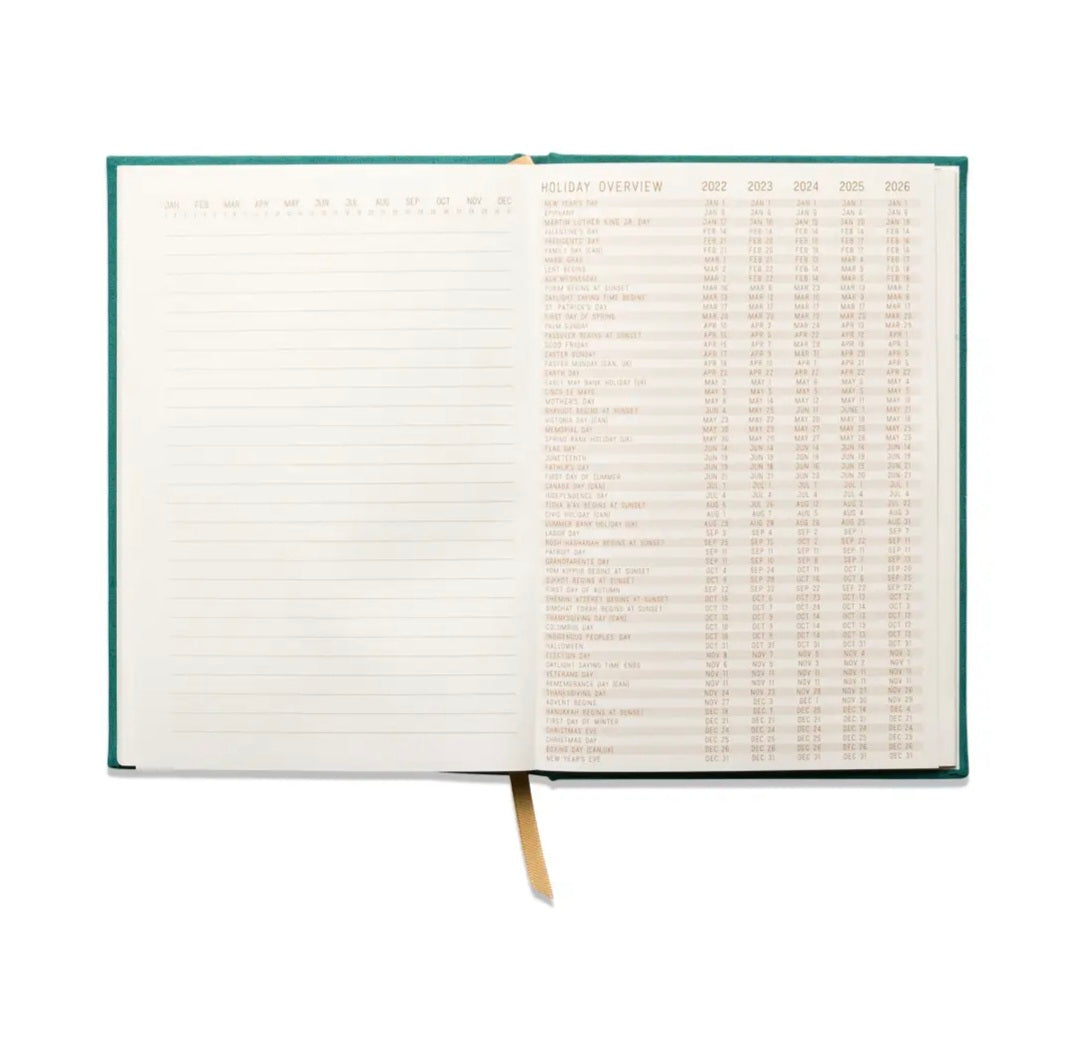 JAN FEB MAR APR MAY JUN JUL AUG SEP OCT NOV DEC
HOLIDAY OVERVIEW 2022 2023 2024 2025 2026
NEW YEAR'S DAY JAN 1 JAN 1 JAN 1 JAN 1 JAN 1
EPIPHANY JAN 6 JAN 6 JAN 6 JAN 6 JAN 6
MARTIN LUTHER KING JR. DAY JAN 17 JAN 16 JAN 15 JAN 20 JAN 19
VALENTINE'S DAY FEB 14 FEB 14 FEB 14 FEB 14 FEB 14
PRESIDENTS' DAY FEB 21 FEB 20 FEB 19 FEB 17 FEB 16
FAMILY DAY (CAN) FEB 21 FEB 20 FEB 19 FEB 17 FEB 16
MARDI GRAS MAR 1 FEB 21 FEB 13 MAR 4 FEB 17
LENT BEGINS MAR 2 FEB 22 FEB 14 MAR 5 FEB 18
ASH WEDNESDAY MAR 2 FEB 22 FEB 14 MAR 5 FEB 18
PURIM BEGINS AT SUNSET MAR 16 MAR 6 MAR 23 MAR 13 MAR 2
DAYLIGHT SAVING TIME BEGINS MAR 13 MAR 12 MAR 10 MAR 9 MAR 8
ST. PATRICK'S DAY MAR 17 MAR 17 MAR 17 MAR 17 MAR 17
FIRST DAY OF SPRING MAR 20 MAR 20 MAR 19 MAR 20 MAR 20
PALM SUNDAY APR 10 APR 2 MAR 24 APR 13 MAR 29
PASSOVER BEGINS AT SUNSET APR 15 APR 5 APR 22 APR 12 APR 1
GOOD FRIDAY APR 15 APR 7 MAR 29 APR 18 APR 3
EASTER SUNDAY APR 17 APR 9 MAR 31 APR 20 APR 5
EASTER MONDAY (CAN, UK) APR 18 APR 10 APR 1 APR 21 APR 6
EARTH DAY APR 22 APR 22 APR 22 APR 22 APR 22
EARLY MAY BANK HOLIDAY (UK) MAY 2 MAY 1 MAY 6 MAY 5 MAY 4
CINCO DE MAYO MAY 5 MAY 5 MAY 5 MAY 5 MAY 5
MOTHER'S DAY MAY 8 MAY 14 MAY 12 MAY 11 MAY 10
SHAVUOT BEGINS AT SUNSET JUN 4 MAY 25 JUN 11 JUNE 1 MAY 21
VICTORIA DAY (CAN) MAY 23 MAY 22 MAY 20 MAY 19 MAY 18
MEMORIAL DAY MAY 30 MAY 29 MAY 27 MAY 26 MAY 25
SPRING BANK HOLIDAY (UK) MAY 30 MAY 29 MAY 27 MAY 26 MAY 25
FLAG DAY JUN 14 JUN 14 JUN 14 JUN 14 JUN 14
JUNETEENTH JUN 19 JUN 19 JUN 19 JUN 19 JUN 19
FATHER'S DAY JUN 19 JUN 18 JUN 16 JUN 15 JUN 21
FIRST DAY OF SUMMER JUN 21 JUN 21 JUN 20 JUN 20 JUN 21
CANADA DAY (CAN) JUL 1 JUL 1 JUL 1 JUL 1 JUL 1
INDEPENDENCE DAY JUL 4 JUL 4 JUL 4 JUL 4 JUL 4
TISHA B'AV BEGINS AT SUNSET AUG 6 JUL 26 AUG 12 AUG 2 JUL 22
CIVIC HOLIDAY (CAN) AUG 1 AUG 7 AUG 5 AUG 4 AUG 3
SUMMER BANK HOLIDAY (UK) AUG 29 AUG 28 AUG 26 AUG 25 AUG 31
LABOR DAY SEP 5 SEP 4 SEP 2 SEP 1 SEP 7
ROSH HASHANAH BEGINS AT SUNSET SEP 25 SEP 15 OCT 2 SEP 22 SEP 11
PATRIOT DAY SEP 11 SEP 11 SEP 11 SEP 11 SEP 11
GRANDPARENTS DAY SEP 11 SEP 10 SEP 8 SEP 7 SEP 13
YOM KIPPUR BEGINS AT SUNSET OCT 4 SEP 24 OCT 11 OCT 1 SEP 20
SUKKOT BEGINS AT SUNSET OCT 9 SEP 29 OCT 16 OCT 6 SEP 25
FIRST DAY OF AUTUMN SEP 22 SEP 22 SEP 22 SEP 22 SEP 22
SHEMINI ATZERET BEGINS AT SUNSET OCT 16 OCT 6 OCT 23 OCT 13 OCT 2
SIMCHAT TORAH BEGINS AT SUNSET OCT 17 OCT 7 OCT 24 OCT 14 OCT 3
THANKSGIVING DAY (CAN) OCT 10 OCT 9 OCT 14 OCT 13 OCT 12
COLUMBUS DAY OCT 10 OCT 9 OCT 14 OCT 13 OCT 12
INDIGENOUS PEOPLES' DAY OCT 10 OCT 9 OCT 14 OCT 13 OCT 12
HALLOWEEN OCT 31 OCT 31 OCT 31 OCT 31 OCT 31
ELECTION DAY NOV 8 NOV 7 NOV 5 NOV 4 NOV 3
DAYLIGHT SAVING TIME ENDS NOV 6 NOV 5 NOV 3 NOV 2 NOV 1
VETERANS DAY NOV 11 NOV 11 NOV 11 NOV 11 NOV 11
REMEMBRANCE DAY (CAN) NOV 11 NOV 11 NOV 11 NOV 11 NOV 11
THANKSGIVING DAY NOV 24 NOV 23 NOV 28 NOV 27 NOV 26
ADVENT BEGINS NOV 27 DEC 3 DEC 1 NOV 30 NOV 29
HANUKKAH BEGINS AT SUNSET DEC 18 DEC 7 DEC 25 DEC 14 DEC 4
FIRST DAY OF WINTER DEC 21 DEC 21 DEC 21 DEC 21 DEC 21
CHRISTMAS EVE DEC 24 DEC 24 DEC 24 DEC 24 DEC 24
CHRISTMAS DAY DEC 25 DEC 25 DEC 25 DEC 25 DEC 25
BOXING DAY (CAN,UK) DEC 26 DEC 26 DEC 26 DEC 26 DEC 26
NEW YEAR'S EVE DEC 31 DEC 31 DEC 31 DEC 31 DEC 31